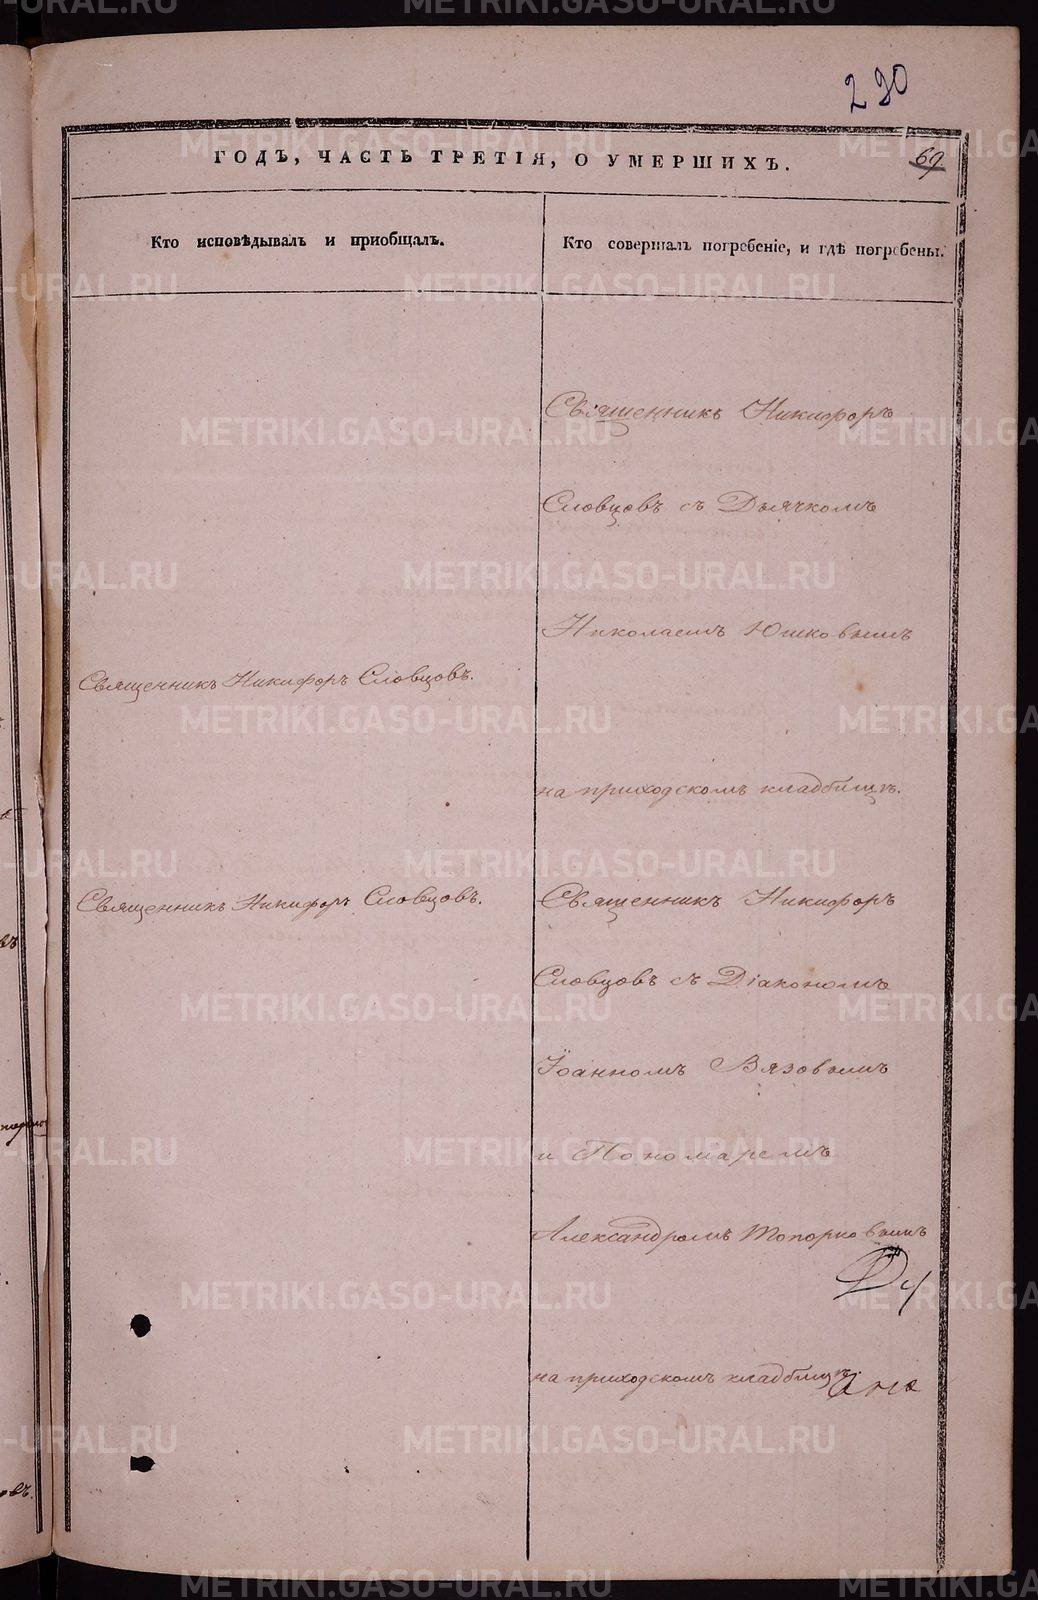 230
ГОДЪ, ЧАСТЬ ТРЕТІЯ, О УМЕРШИХЪ.
69.
Кто исповѣдывалъ и приобщалъ.
Кто совершалъ погребеніе, и гдѣ погребены.
Священникъ Никифоръ
Словцовъ съ Дьячкомъ
Николаемъ Юшковымъ
Священникъ Никифоръ Словцовъ.
на приходскомъ кладбищѣ.
Священникъ Никифоръ Словцовъ.
Священникъ Никифоръ
Словцовъ съ Діакономъ
Іоанномъ Вязовымъ
и Пономаремъ
Александромъ Топорковымъ
на приходскомъ кладбищѣ
METRIKI.GASO-URAL.RU